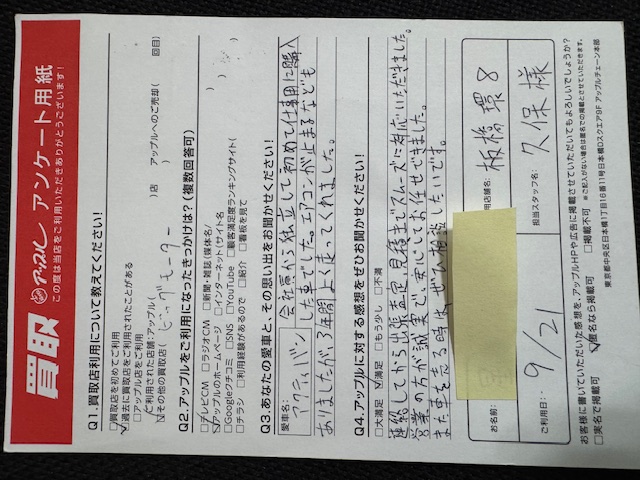 買取 アップル アンケート用紙
この度は当店をご利用いただきありがとうございます!
Q1.買取店利用について教えてください!
□買取店を初めてご利用
☑過去に買取店をご利用されたことがある
□アップル店をご利用
ご利用された店舗:アップル( )店 アップルへのご売却( 回目)
☑その他の買取店( ビッグモーター )
Q2.アップルをご利用になったきっかけは?(複数回答可)
☑テレビCM □ラジオCM □新聞・雑誌(媒体名/ )
☑アップルのホームページ □インターネット(サイト名 )
□Googleクチコミ □SNS □YouTube □顧客満足度ランキングサイト( )
□チラシ □利用経験があるので □紹介 □看板を見て
Q3.あなたの愛車と、その思い出をお聞かせください!
愛車名: アクティバン 会社員から独立して初めて仕事用に購入
した車でした。エアコンが止まるなども
ありましたが、3年間よく走ってくれました。
Q4.アップルに対する感想をぜひお聞かせください!
□大満足 ☑満足 □もう少し □不満
連絡してから出張査定、見積までスムーズに対応いただきました。
営業の方が誠実で、安心してお任せできました。
また車を売る時は、ぜひ相談したいです。
お名前:
ご利用店舗名: 板橋環8
ご利用日: 9/21
担当スタッフ名: 久保様
お客様に書いていただいた感想を、アップルHPや広告に掲載させていただいてもよろしいでしょうか?
□実名で掲載可 ☑匿名なら掲載可 □掲載不可 ※ご記入がない場合は匿名での掲載とさせていただきます。
東京都中央区日本橋1丁目16番11号日本橋Dスクエア9F アップルチェーン本部